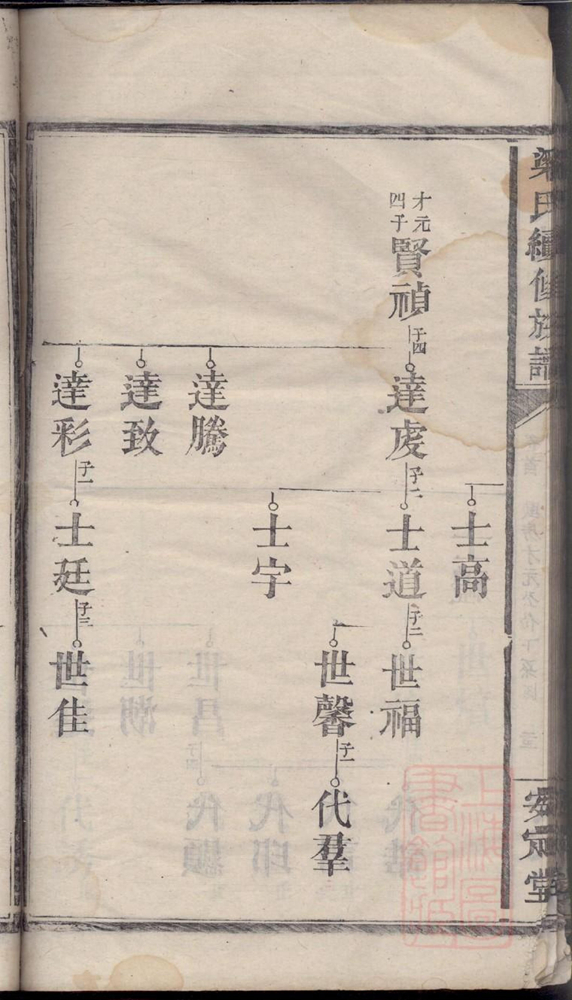 梁氏續修族譜
安定堂
士高
才元
四子
賢禎
子四
達虔
子二
士道
子二
世福
世馨
子一
代羣
士宇
達騰
達致
達彩
子一
士廷
子三
世佳
上海圖書館藏